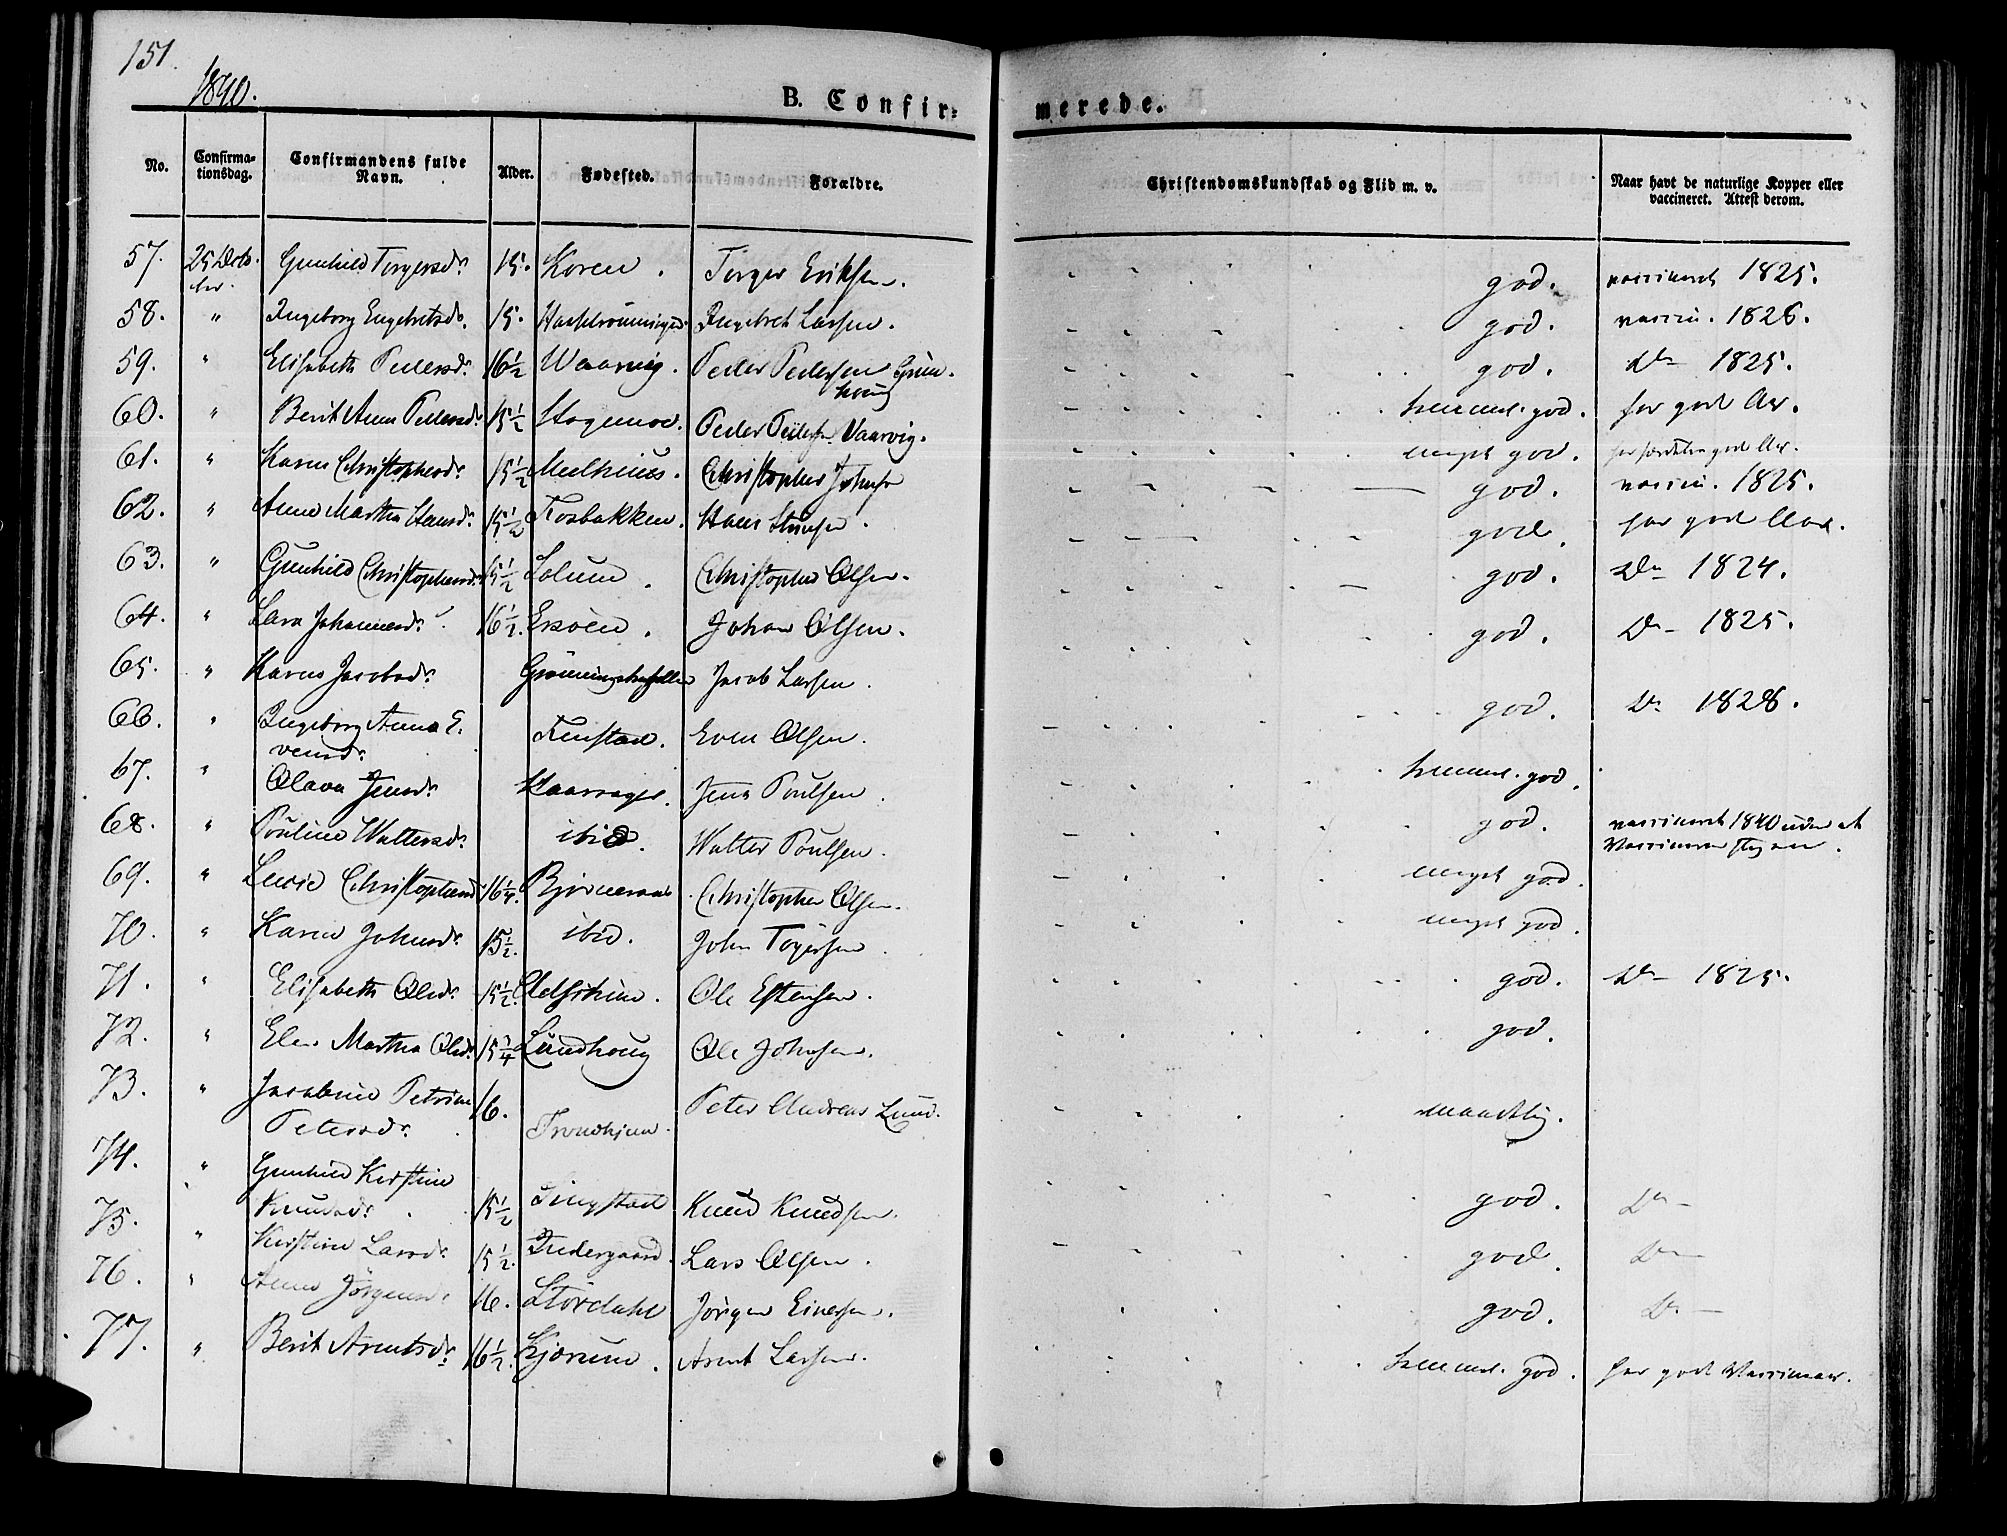 151.
1840.
B. Confir=
merede.
No.
Confirma-
tionsdag.
Confirmandens fulde
Navn.
Alder.
Fødested.
Forældre.
Christendomskundskab og Flid m. v.
Naar havt de naturlige Kopper eller
vaccineret. Attest derom.
57. 25 Octo- Gunhild Torgersdr. 15. Koren. Torger Eriksen. god. vaccineret 1825.
ber.
58. " Ingeborg Engebretsdr. 15. Engebret Larsen. god. vaccin. 1826.
59. " Elisabeth Pedersdr. 16½ Waarvig. Peder Pedersen Grün- god. Do 1825.
houg
60. " Berit Anna Pedersdr. 15½ Hogemoe. Peder Pedersen Vaarvig. temmel. god. har god Ar.
61. " Karen Christophersdr. 15½ Meelhuus. Christopher Johnsen meget god. god Ar.
62. " Anne Martha Hansdr. 15½ Fosbakken. Hans god. vaccin. 1825.
63. " Gunhild Christophersdr. 15½ Solum. Christopher Olsen. god. har god Aar.
64. " Lava Johannesdr. 16½. Ersøen. Johan Olsen. god. Do 1824.
65. " Karen Jacobsdr. Jacob Larsen. god. Do 1825.
66. " Ingeborg Anna E- Finstad. Even Olsen. god. Do 1828.
vensdr.
67. " Olava Jensdr. Haarsager. Jens Poulsen. temmel. god.
68. " Pouline Woltersdr. ibid. Wolter Poulsen. god. vaccineret 1840 uden at
Vaccinen slog an.
69. " Lucie Christophersdr. 16¼. Bjørneraas Christopher Olsen. meget god.
70. " Karen Johnsdr. 15½. ibid. John Tøgersen. meget god.
71. " Elisabeth Olsdr. 15½. Ole Estensen. god. Do 1825.
72. " Elen Martha Olsdr. 15¼ Lundhoug Ole Johnsen. god.
73. " Jacobine Petrine 16. Trondhjem. Peter Andreas Lund. maadelig.
Petersdr.
74. " Gunhild Kirstine
Knudsdr. 15½ Tingstad Knud Knudsen. god. Do
75. " Kirstine Larsdr. 15½. Indergaard. Lars Olsen. god. Do
76. " Anne Jørgensdr. 16. Størdahl Jørgen Einersen. god. Do
77. " Berit Arentsdr. 16½. Kjørum. Arent Larsen. temmel. god. har godt Vaccinaar.